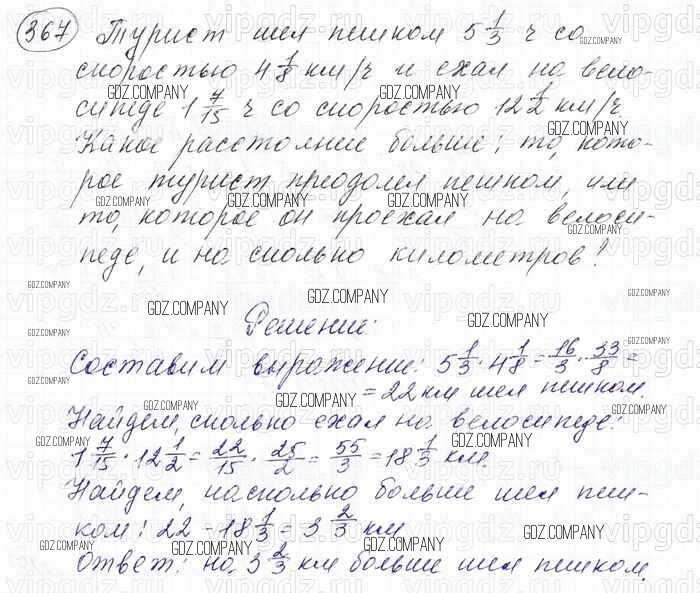 367 Турист шел пешком 5 1/3 ч со
скоростью 4 1/8 км/ч и ехал на вело-
сипеде 1 7/15 ч со скоростью 12 1/2 км/ч.
Какое расстояние больше: то, кото-
рое турист преодолел пешком, или
то, которое он проехал на велоси-
педе, и на сколько километров?
Решение:
Составим выражение: 5 1/3 · 4 1/8 = 16/3 · 33/8 =
= 22 км шел пешком.
Найдем, сколько ехал на велосипеде:
1 7/15 · 12 1/2 = 22/15 · 25/2 = 55/3 = 18 1/3 км.
Найдем, насколько больше шел пеш-
ком: 22 - 18 1/3 = 3 2/3 км
Ответ: на 3 2/3 км больше шел пешком.